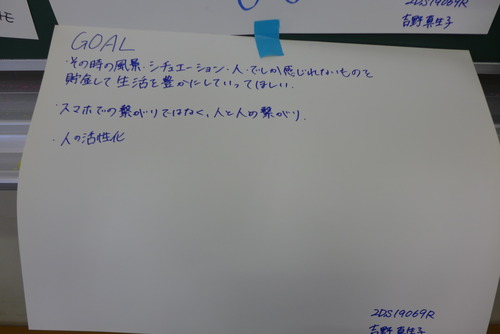 モ
2DS19069R
吉野真生子
GOAL
・その時の風景・シチュエーション・人・でしか感じれないものを
貯金して生活を豊かにしていってほしい.
・スマホでの繋がりではなく、人と人の繋がり.
・人の活性化
2DS19069R
吉野真生子